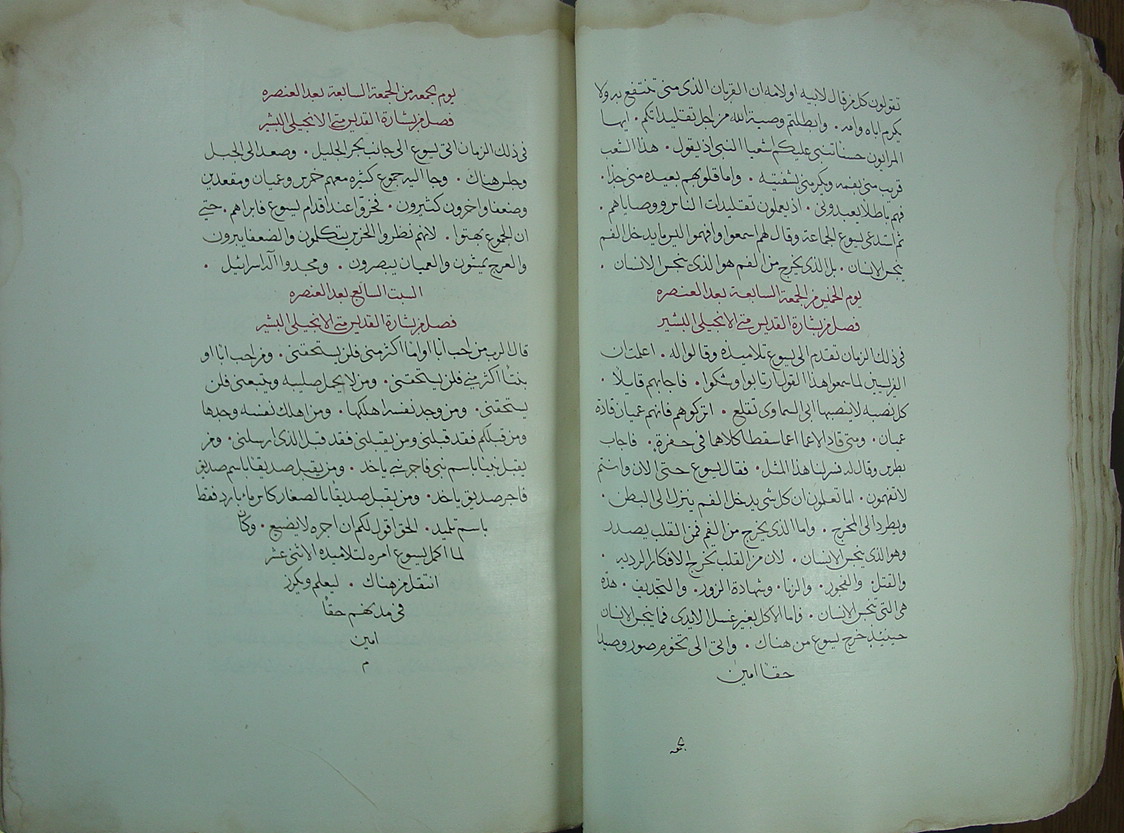 تقولون كل من قال لابيه او لامه ان القربان الذي مني تنتفع به ولا
يكرم اباه وامه . وابطلتم وصية الله من اجل تقليداتكم . ايها
المراييون حسنا تنبي عليكم اشعيا النبي اذ يقول . هذا الشعب
قريب مني بفمه ويكرمني بشفتيه . واما قلوبهم بعيده مني جدا .
فهم باطلا يعبدوني . اذ يعلمون تقليدات الناس ووصاياهم .
ثم استدعى يسوع الجماعة وقال لهم اسمعوا وافهموا ليس ما يدخل الفم
ينجس الانسان . بل الذي يخرج من الفم هو الذي ينجس الانسان .
يوم الخميس من الجمعة السابعة بعد العنصره
فصل من بشارة القديس متى الانجيلي البشير
في ذلك الزمان تقدم الى يسوع تلاميذه وقالوا له . اعلمت ان
الفريسيين لما سمعوا هذا القول ارتابوا وشكوا . فاجابهم قايلا .
كل نصبه لا ينصبها ابي السماوي تقلع . اتركوهم فانهم عميان قادة
عميان . ومتى قاد الاعما اعما سقطا كلاهما في حفرة . فاجاب
بطرس وقال له فسر لنا هذا المثل . فقال يسوع حتى الان وانتم
لا تفهمون . اما تعلمون ان كل شي يدخل الفم ينزل الى البطن .
ويطرد الى المخرج . واما الذي يخرج من الفم فمن القلب يصدر
وهو الذي ينجس الانسان . لان من القلب يخرج الافكار الرديه
والقتل والفجور . والزنا . وشهادة الزور . والتجديف . هذه
هي التي تنجس الانسان . فاما الاكل بغير غسل الايدي فما ينجس الانسان
حينيذ خرج يسوع من هناك . واتى الى تخوم صور وصيدا
حقا امين
يوم الجمعه من الجمعة السابعة بعد العنصره
فصل من بشارة القديس متى الانجيلي البشير
في ذلك الزمان اتى يسوع الى جانب بحر الجليل . وصعد الى الجبل
وجلس هناك . وجا اليه جموع كثيره معهم خرس وعميان ومقعدين
وضعفا واخرون كثيرون . عند اقدام يسوع فابراهم . حتى
ان الجموع بهتوا . لانهم نظروا الخرس يتكلمون والضعفا يبرون
والعرج يمشون والعميان يبصرون . ومجدوا اله اسرائيل .
السبت السابع بعد العنصره
فصل من بشارة القديس متى الانجيلي البشير
قال الرب من احب ابا او اما اكثر مني فلن يستحقني . ومن احب ابنا او
بنتا اكثر مني فلن يستحقني . ومن لا يحمل صليبه ويتبعني فلن
يستحقني . ومن وجد نفسه اهلكها . ومن اهلك نفسه وجدها
ومن قبلكم فقد قبلني ومن يقبلني فقد قبل الذي ارسلني . ومن
يقبل نبيا باسم نبي فاجر نبي ياخذ . ومن يقبل صديقا باسم صديق
فاجر صديق ياخذ . ومن يقبل الصغار كاس ما بارد فقط
باسم تلميذ . الحق اقول لكم ان اجره لا يضيع . وكان
لما اكمل يسوع امره لتلاميذه الاثنى عشر
انتقل من هناك . ليعلم ويكرز
في مدنهم حقا
امين
م